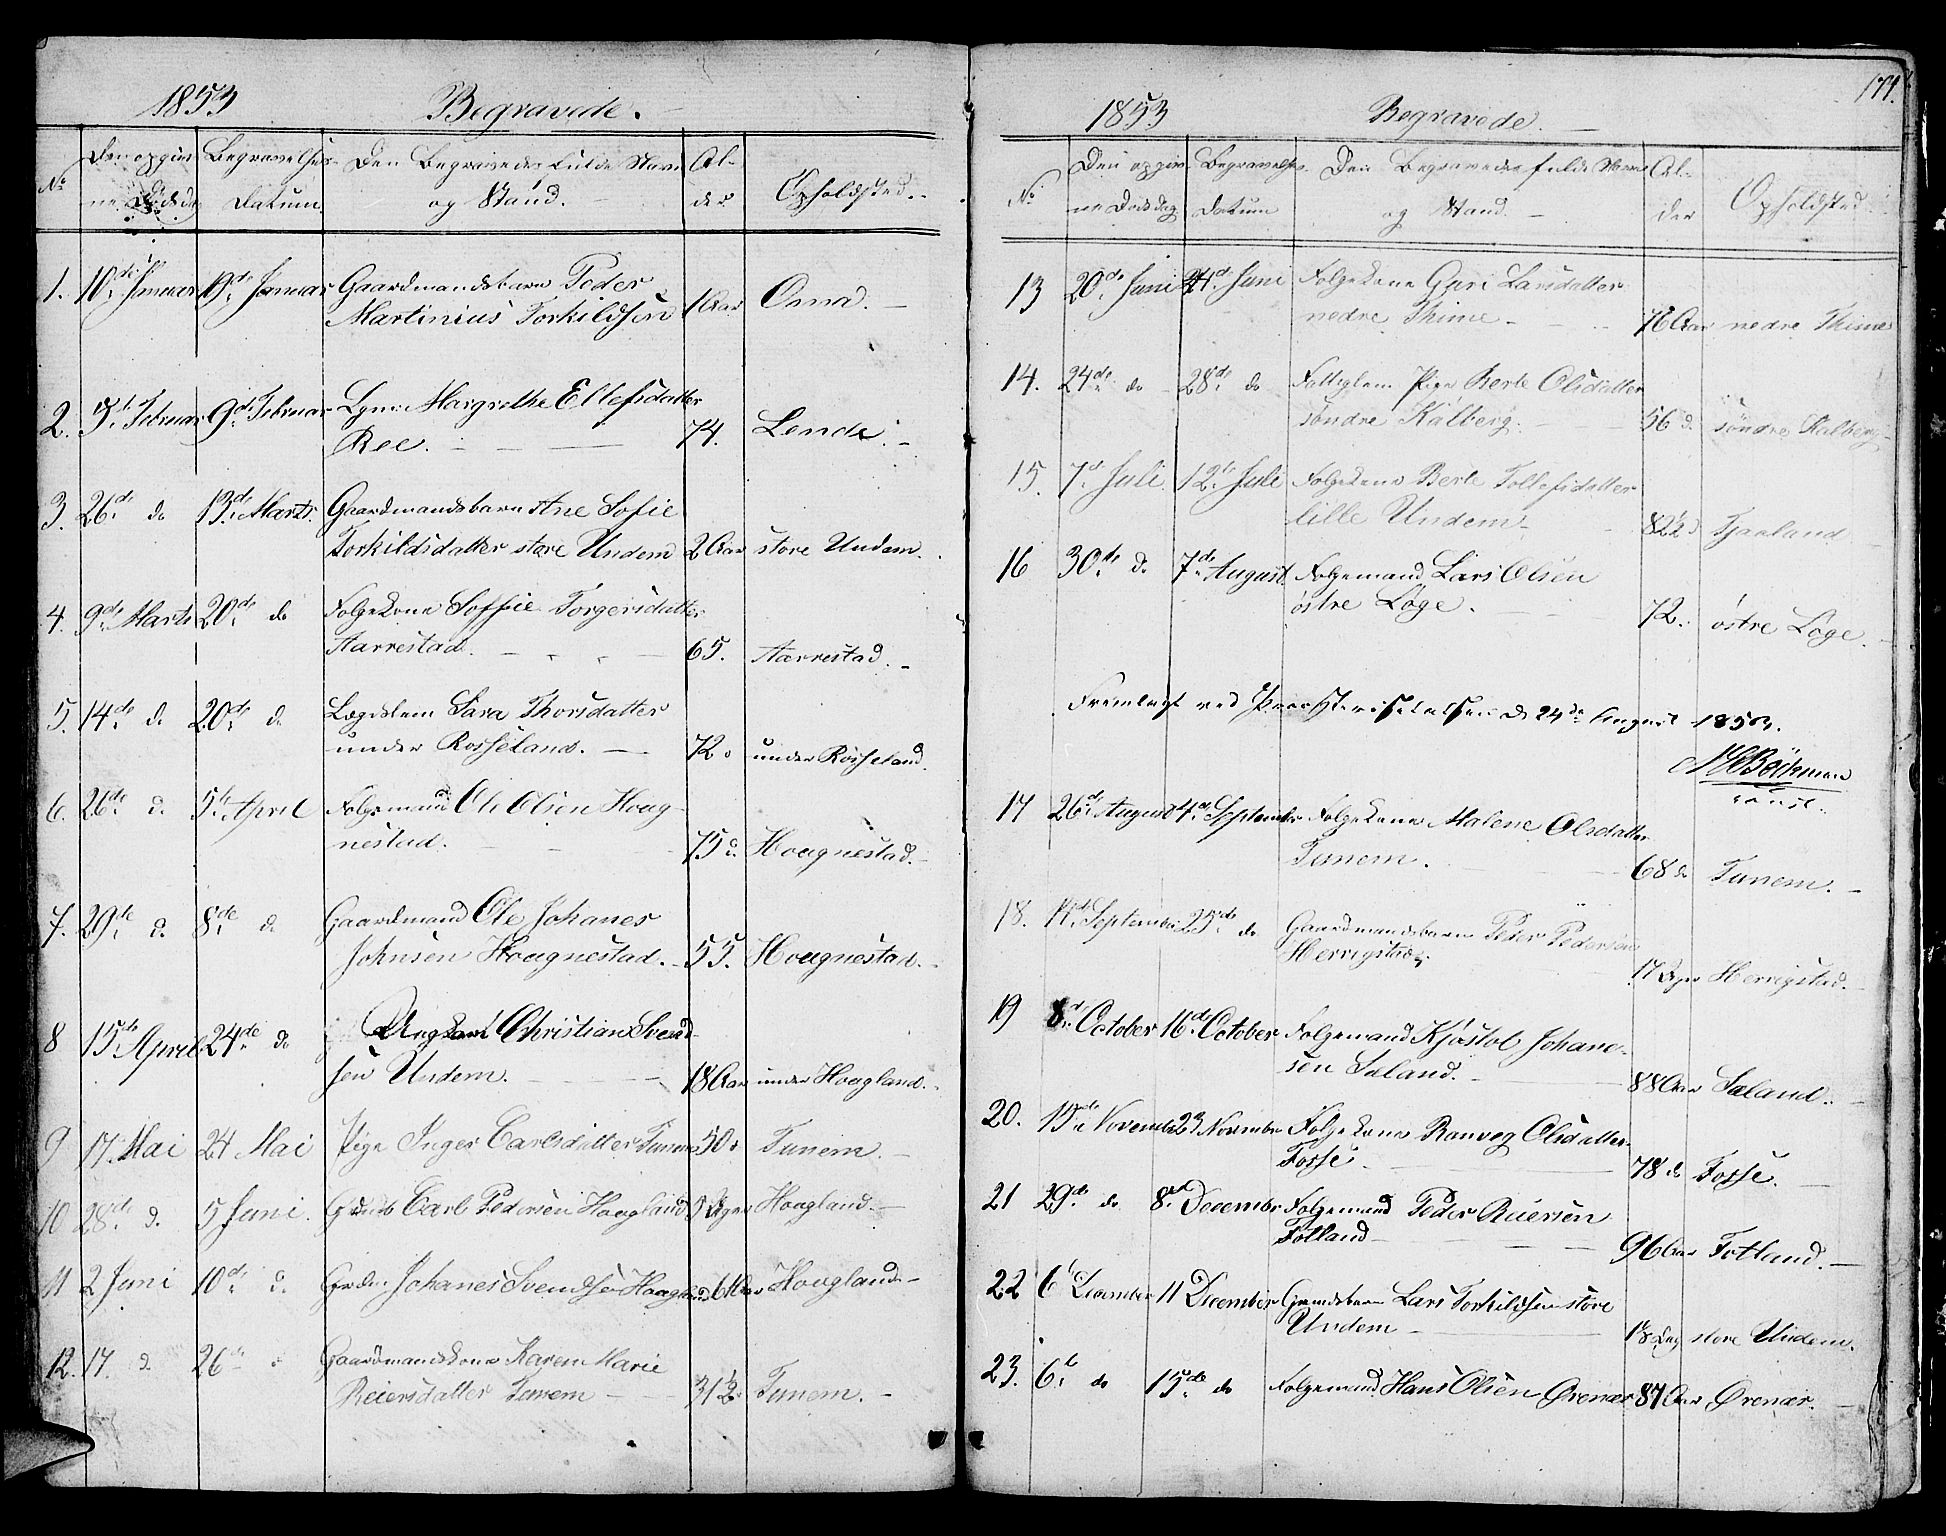 1853 Begravede.
No Den opgivne Dødsdag Begravelses Datum. Den Begravedes fulde Navn og Stand. Alder Opholdsted.
1. 10de Januar 19de Januar Gaardmandsbarn Peder
Martinius Torkildsen 1 Aar Oma.
2. Februar 9de Februar Margrethe Ellefsdatter
Ree. 74. Lende.
3. 26de do 13de Marts Gaardmandsbarn Ane Sofie
Torkildsdatter store Undem 2 Aar store Undem.
4. 9de Marts 20de do Folgekone Soffie Torgersdatter
Aarrestad. 65. Aarrestad.
5. 14de do 20de do Lægdslem Sara Thorsdatter
under Rosseland. 72 under Rosseland.
6. 26de d. 5te April Folgemand Ole Olsen Houg-
nestad. 75 d. Hougnestad.
7. 29de d. 8de do Gaardmand Ole Johanes
Johnsen Hougnestad. 55. Hougnestad.
8 15de April 24de do Ungkarl Christian Svend-
sen Undem. 18 Aar under Hougland.
9 17. Mai 24 Mai Pige Inger Carlsdatter Tunem 50 Tunem.
10 28de d. 5 Juni. Carl Pedersen Hougland Hougland.
11 2 Juni 10de d. Johanes Svendsen Hougland Hougland
12. 17. d. 26de Gaardmandskone Karen Marie
Reiersdatter Tunem 31½ Tunem.
171.
1853 Begravede.
No Den opgivne Dødsdag Begravelses Datum Den Begravedes fulde Navn og Stand. Alder Opholdsted
13 20de Juni 24de Juni Folgekone Guri Larsdatter
nedre Thime 76 Aar nedre Thime
14. 24de do 28de do Fattiglem Pige Berte Olsdatter
søndre Kalberg. 56 d. søndre Kalberg
15. 7de Juli 12te Juli Folgekone Berte Tollefsdatter
lille Undem 82½ d Tjaaland
16 30te d. 7de August. Folgemand Lars Olsen
østre Løge. 72. østre Løge.
Fremlagt ved d 24de August 1853.
Bøckman
const.
17 26de August 4de September Folgekone Malene Olsdatter
Tunem. 68 do Tunem.
18. September 25de do Gaardmandsbarn Peder Pedersen
Herrigstad. 17 Herrigstad.
19 8de October 16de October Folgemand Kjøstol Johane-
sen Sæland. 88 Aar Sæland.
20. 15de November 23 November Folgekone Ranveg Olsdatter
Fosse. 78 do Fosse.
21 29de do 8de December Folgemand Peder Reiersen
Fotland 96 Aar Fotland.
22 6te December 11 December Gaardsbarn Lars Torkildsen store
Undem store Undem.
23. 6te do 15de do Folgemand Hans Olsen Ørenær 87 Aar Ørenær.